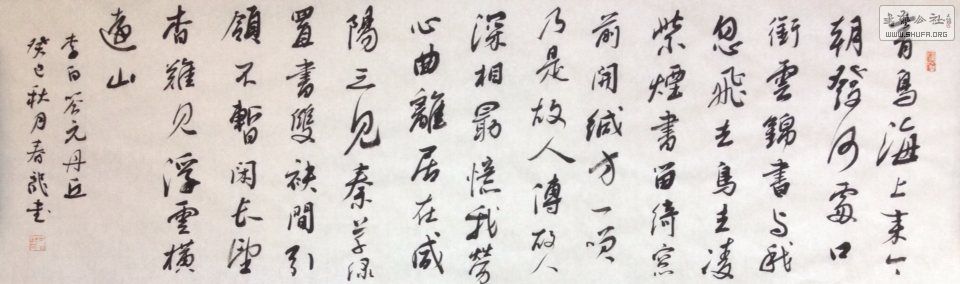 青鳥海上来今
朝發何處口
銜雲錦書与我
忽飛去鳥去凌
紫煙書留綺窓
前開緘方一笑
乃是故人傳故人
深相勗憶我勞
心曲離居在咸
陽三見秦草綠
置書雙袂間引
領不暫闲長望
杳難見浮雲橫
遠山
李白答元丹丘
癸巳秋月春龍書
WWW.SHUFA.ORG